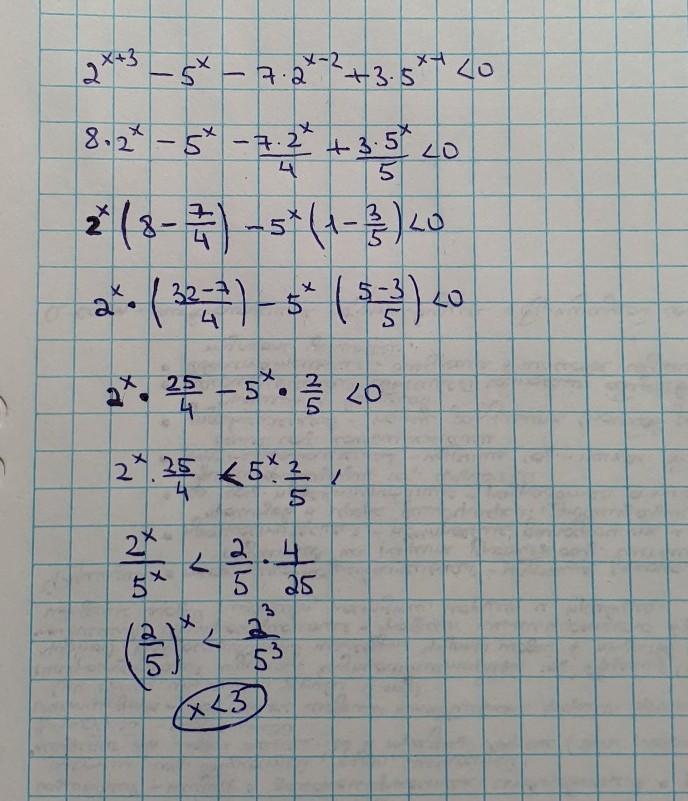 2^{x+3} − 5^x − 7·2^{x−2} + 3·5^{x−1} < 0
8·2^x − 5^x − \frac{7·2^x}{4} + \frac{3·5^x}{5} < 0
2^x (8 − \frac{7}{4}) − 5^x (1 − \frac{3}{5}) < 0
2^x · (\frac{32−7}{4}) − 5^x (\frac{5−3}{5}) < 0
2^x · \frac{25}{4} − 5^x · \frac{2}{5} < 0
2^x · \frac{25}{4} < 5^x · \frac{2}{5}
\frac{2^x}{5^x} < \frac{2}{5} · \frac{4}{25}
(\frac{2}{5})^x < \frac{2^3}{5^3}
x < 3